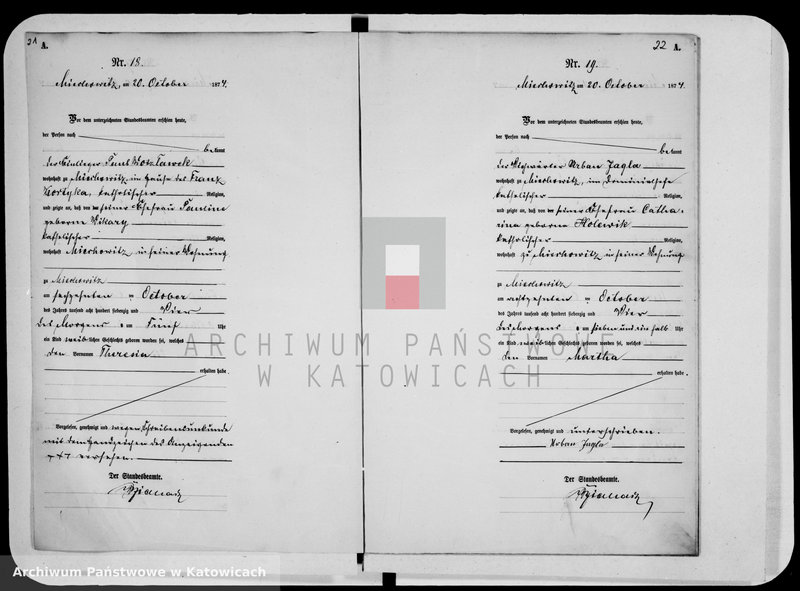 21 A.
Nr. 18.
Miechowitz, am 20. October 1874.
Vor dem unterzeichneten Standesbeamten erschien heute,
der Person nach
bekannt
der Einlieger
wohnhaft zu Miechowitz im Hause des Franz
katholischer Religion,
und zeigte an, daß von seiner Ehefrau Pauline
geborne
katholischer Religion,
wohnhaft Miechowitz in seiner Wohnung
zu Miechowitz
am sechzehnten October
des Jahres tausend acht hundert siebenzig und Vier
des Morgens um Fünf Uhr
ein Kind weiblichen Geschlechts geboren worden sei, welches
den Vornamen Theresia
erhalten habe
Vorgelesen, genehmigt und wegen Schreibensunkunde
mit dem Handzeichen des Anzeigenden
+++ versehen.
Der Standesbeamte.
22 A.
Nr. 19.
Miechowitz am 20. October 1874.
Vor dem unterzeichneten Standesbeamten erschien heute,
der Person nach
bekannt
der Urban Jagla
wohnhaft zu Miechowitz, im Dominialhofe
katholischer Religion,
und zeigte an, daß von seiner Ehefrau Catha-
rina geborne Holewik
katholischer Religion,
wohnhaft zu Miechowitz in seiner Wohnung
zu Miechowitz
am achtzehnten October
des Jahres tausend acht hundert siebenzig und Vier
des Morgens um sieben und ein halb Uhr
ein Kind weiblichen Geschlechts geboren worden sei, welches
den Vornamen Martha
erhalten habe.
Vorgelesen, genehmigt und unterschrieben.
Urban Jagla
Der Standesbeamte.
ARCHIWUM PAŃSTWOWE
W KATOWICACH
Archiwum Państwowe w Katowicach